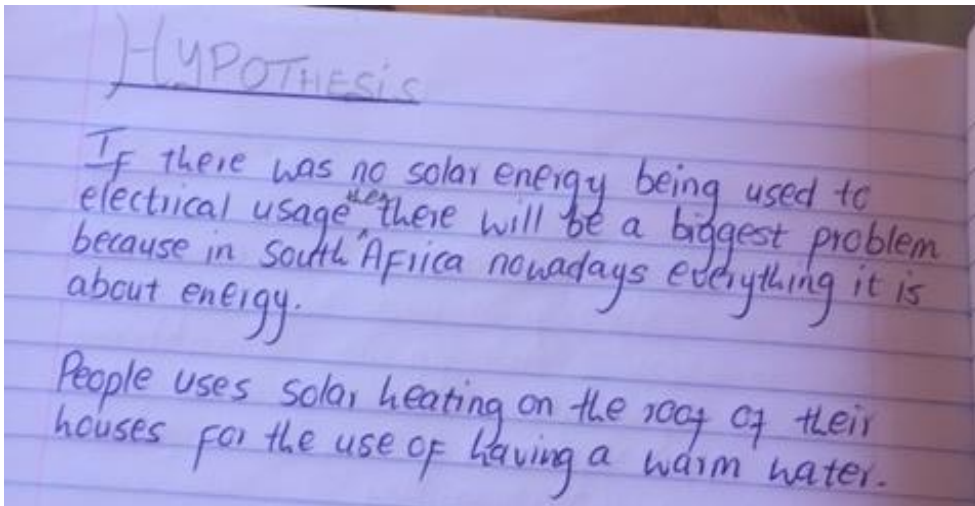 HYPOTHESIS
If there was no solar energy being used to
electrical usage then there will be a biggest problem
because in South Africa nowadays everything it is
about energy.
People uses solar heating on the roof of their
houses for the use of having a warm water.